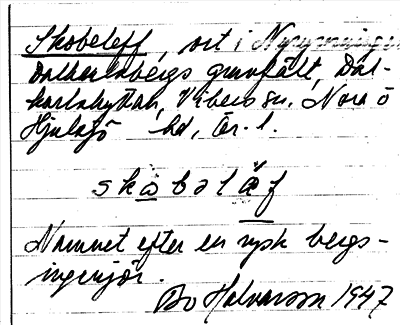 Skobeleff, ort i
Dalkarlsbergs gruvfält, Dal-
karlshyttan, Vibers sn. Nora o
Hjulsjö hd, Ör. l.
skobəläf
Namnet efter en rysk bergs-
ingenjör.
Bo Halvarsson 1947